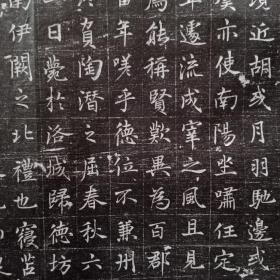 境近胡戎月羽馳邊或
奠亦使南陽坐嘯任定
年遽流成宰之風且見
焉能稱賢歟異為百郡
留年嗟乎德位不兼州
於資陶潛之屈春秋六
一日薨於洛城歸德坊
南伊闕之北禮也寢苫